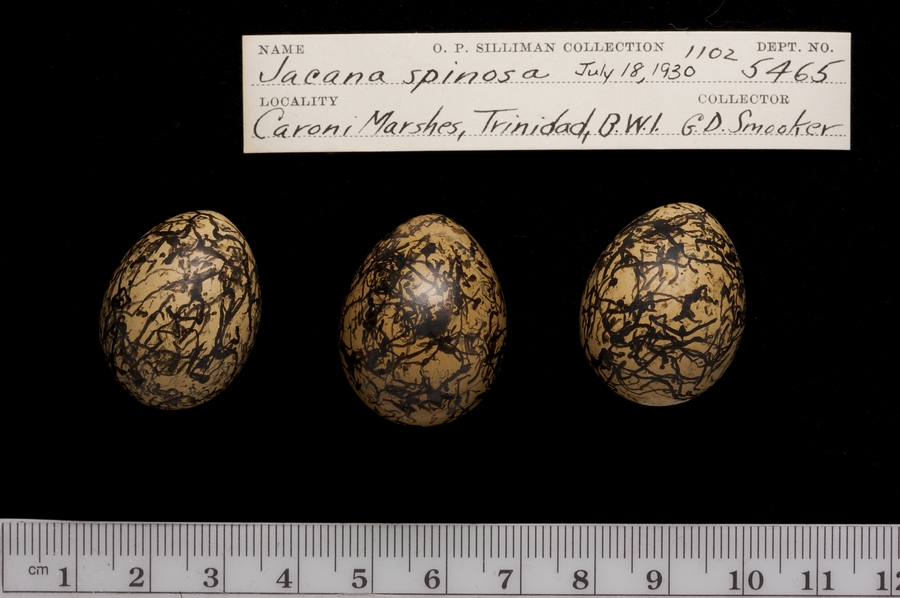 NAME O. P. SILLIMAN COLLECTION 1102 DEPT. NO.
Jacana spinosa July 18, 1930 5465
LOCALITY COLLECTOR
Caroni Marshes, Trinidad, B.W.I. G.D. Smooker
cm 1 2 3 4 5 6 7 8 9 10 11 12